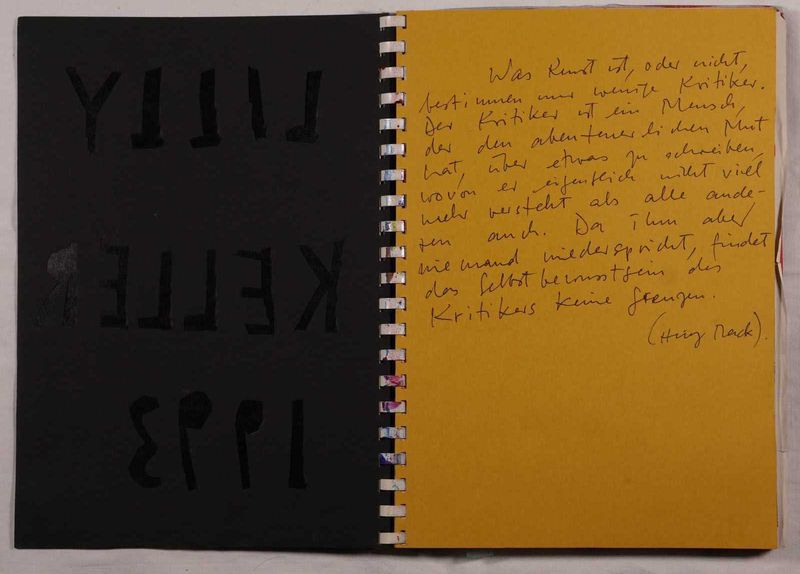 LILLY
KELLER
1993
Was Kunst ist, oder nicht,
bestimmen nur wenige Kritiker.
Der Kritiker ist ein Mensch,
der den abenteuerlichen Mut
hat, über etwas zu schreiben,
wovon er eigentlich nicht viel
mehr versteht als alle ande-
ren auch. Da ihm aber
niemand widerspricht, findet
das Selbstbewusstsein des
Kritikers keine Grenzen.
( Mack).